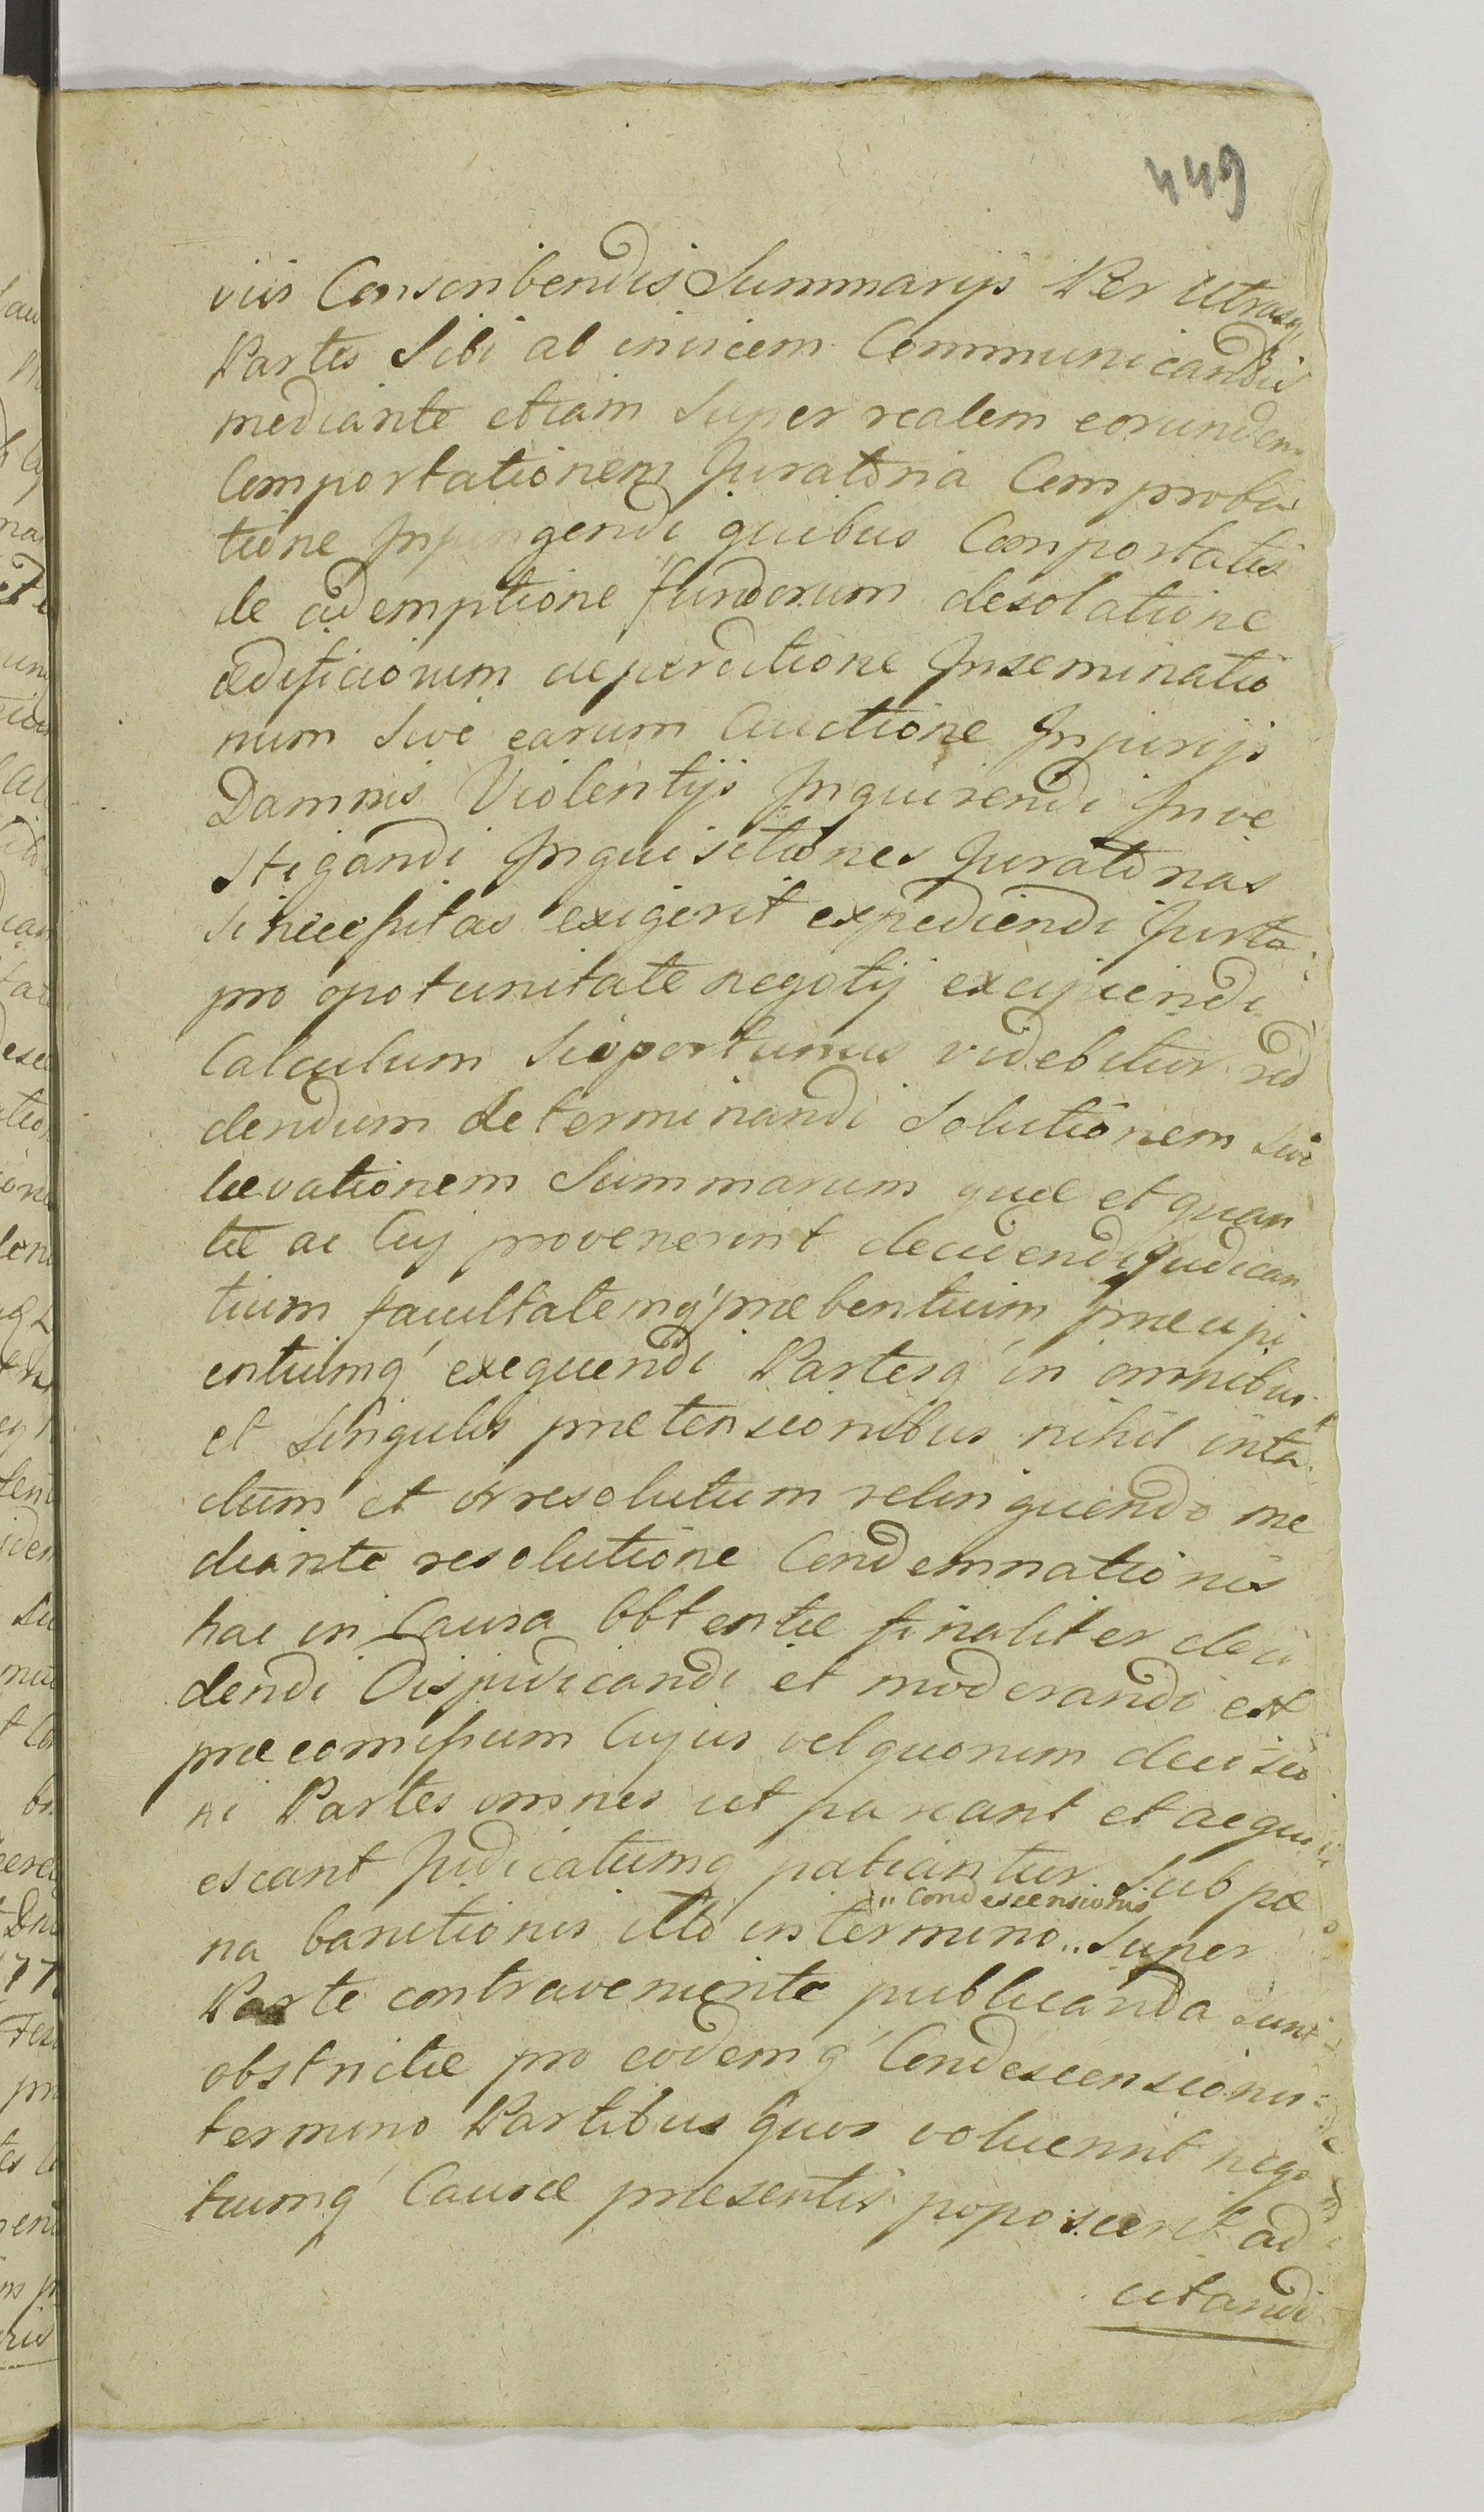 449
viis Conscribendis Summarijs Per Utrasq,
Partes Sibi ab invicem Communicandis
mediante etiam Super realem eorundem
Comportationem Juratoria Comproba
tione Injungendi quibus Comportatis
de ademptione fundorum desolatione
ædificiorum deperditione Inseminatio
num Sive earum Auctione Injurijs
Damnis Violentijs Inquirendi Inve
stigandi Inquisitiones Juratorias
Si necessitas exigerit expediendi Jurta
pro opotunitate negotij excipiendi
Calculum Sioportunus videbitur red
dendum determinandi Solutionem Sive
lævationem Summarum quæ et quan
tæ ac Cuj provenerint decidendi Judican
tium facultatemq' præbentium præcipi
entiumq' exequendi Partesq' in omnibus
et Singulis prætensionibus nihil inta
ctum et irresolutum relinquendo me
diante resolutione Condemnationis
hac in Causa Obtentæ finaliter deci
dendi Disjudicandi et moderandi est
præcomissum Cujus vel quorum decisio
ni Partes omnes ut pareant et acqui
escant Judicatumq patiantur Sub pæ
na banitionis itto in termino ,, Condescensionis ,, Super
Parte contraveniente publicanda sunt
obstrictæ pro eodemq' Condescensionis
termino Partibus quos voluerint nego
tiumq' Causæ præsentis poposcerit ad
citandi